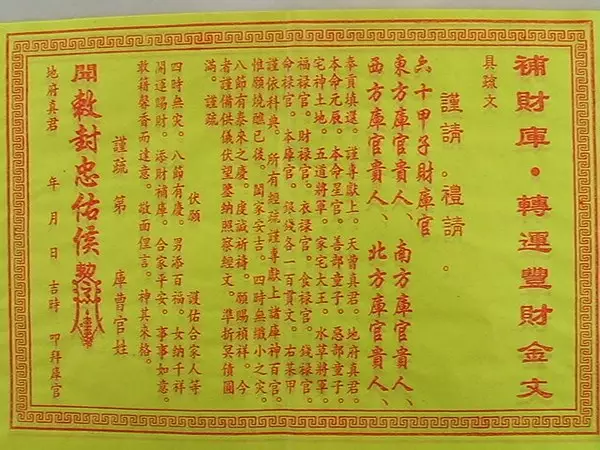 補財庫・轉運豐財金文
具疏文
謹請。禮請。
六十甲子財庫官
東方庫官貴人、南方庫官貴人、
西方庫官貴人、北方庫官貴人、
奉貢填還。謹專獻上。天曹真君。地府真君。
本命元辰。本命星官。善部童子。惡部童子。
宅神土地。五道將軍。家宅大王。水草將軍。
福祿官。財祿官。衣祿官。食祿官。錢祿官。
命祿官。本庫官。銀錢各一百貫文。右某甲
謹依科典。所有經疏謹專獻上諸庫神百官。
惟願燒醮已後。闔家安吉。四時無纖小之灾。
八節有泰來之慶。度誠祈禱。願賜禎祥。今
者謹備供儀伏望鑒納照察經文。準折冥債圓
滿。謹疏
伏願 護佑合家人等
四時無灾。八節有慶。男添百福。女納千祥
開運賜財。添財補庫。合家平安。事事如意。
敢藉馨香而達意。敬面俚言。神其來格。
謹疏 第 庫曹官姓
開敕封忠佑侯
地府真君 年 月 日 吉時 叩拜庫官